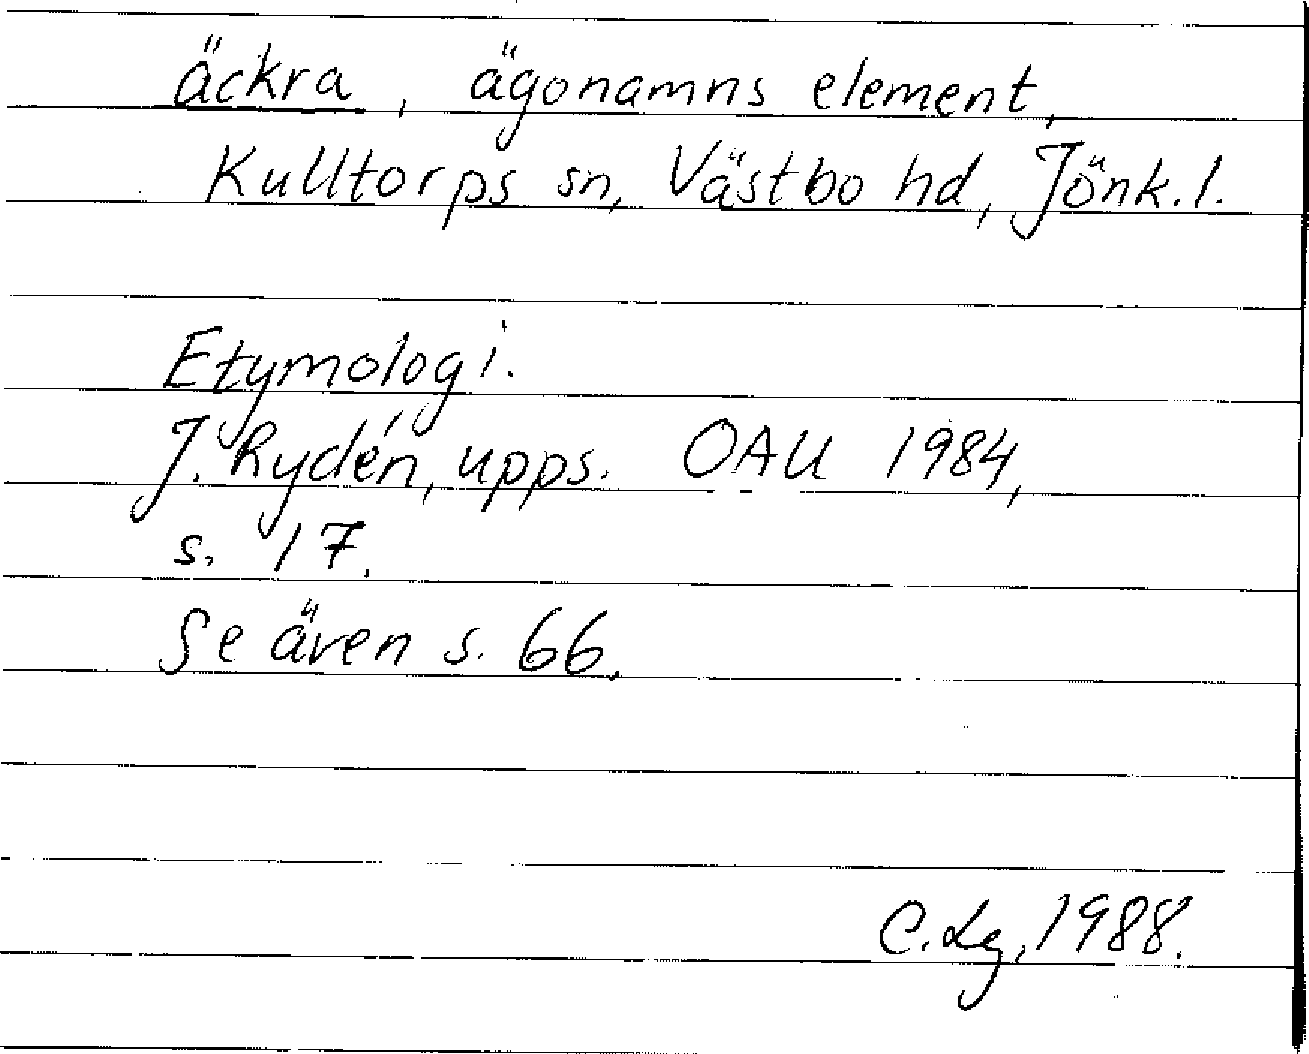 äckra, ägonamns element,
Kulltorps sn, Västbo hd, Jönk.l.
Etymologi.
J. Rydén, upps. OAU 1984,
s. 17.
Se även s. 66.
C. Lg, 1988.